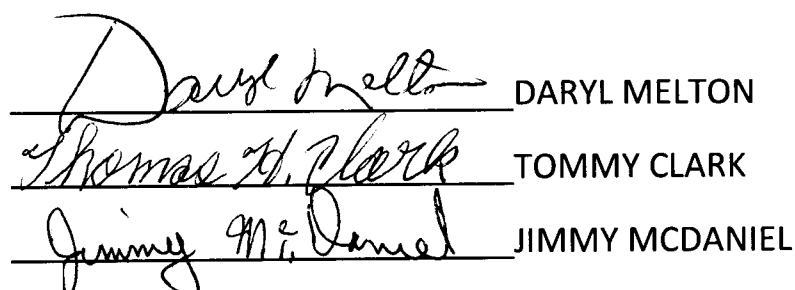 Daryl Melton DARYL MELTON
Thomas H. Clark TOMMY CLARK
Jimmy McDaniel JIMMY MCDANIEL